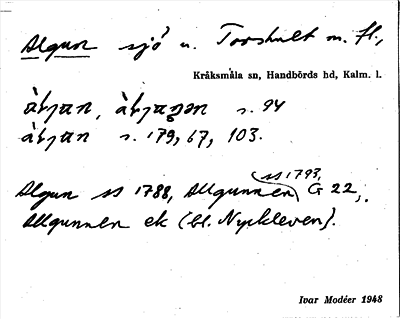 Algun sjö u. Torshult m. fl.,
Kråksmåla sn, Handbörds hd, Kalm. l.
s. 94
s. 179, 67, 103.
ss 1793,
Algun ss 1788, Allgunnen, G 22,
Allgunnen ek (bl. Nyckleven).
Ivar Modéer 1948